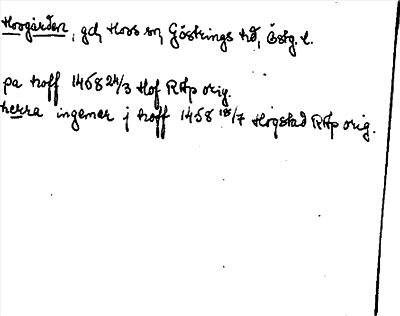 Hovgården, gd, Hovs sn, Göstrings hd, Östg. l.
pa hoff 1458 24/3 Hof RAp orig.
herra ingemar j hoff 1458 18/7 Högstad RAp orig.